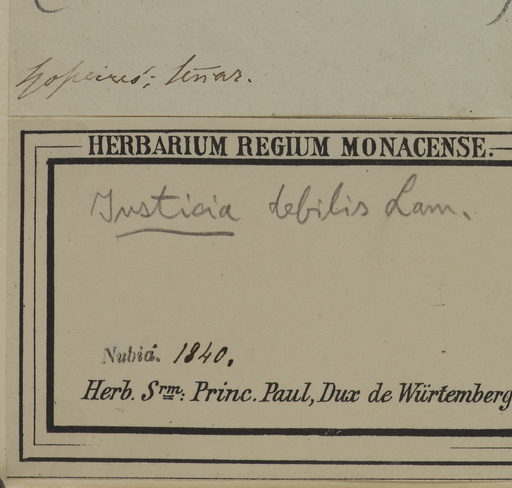 HERBARIUM REGIUM MONACENSE.
Justicia debilis Lam.
Nubia. 1840.
Herb. Srm: Princ. Paul, Dux de Würtemberg